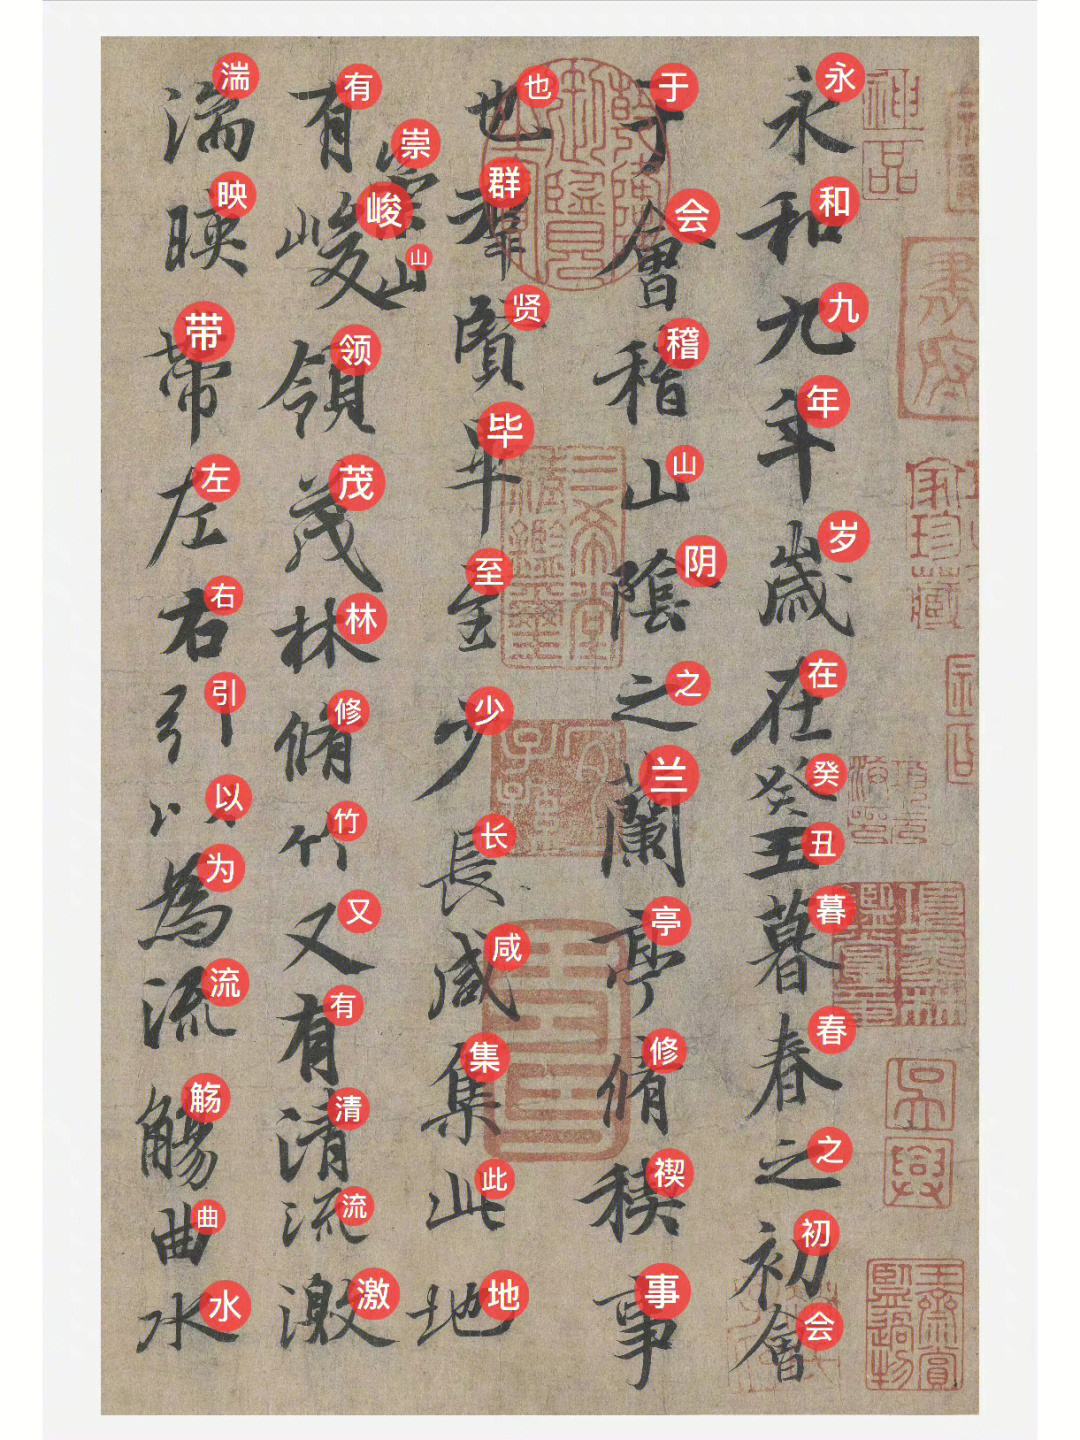 永和九年歲在癸丑暮春之初會
于會稽山陰之蘭亭脩稧事
也羣賢畢至少長咸集此地
有崇山峻領茂林脩竹又有清流激
湍暎帶左右引以為流觴曲水
永和九年岁在癸丑暮春之初会
于会稽山阴之兰亭修禊事
也群贤毕至少长咸集此地
有崇山峻领茂林修竹又有清流激
湍映带左右引以为流觞曲水